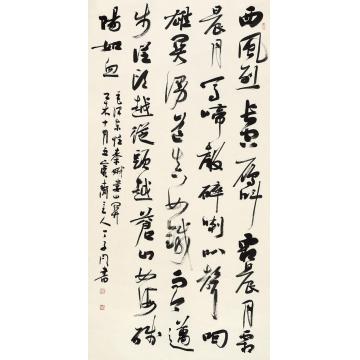 西風烈長空雁叫霜晨月霜
晨月馬啼聲碎喇叭聲咽
雄関漫道真如鐵而今邁
步從頭越從頭越蒼山如海殘
陽如血
毛澤東憶秦娥婁山関
十月 主人 書